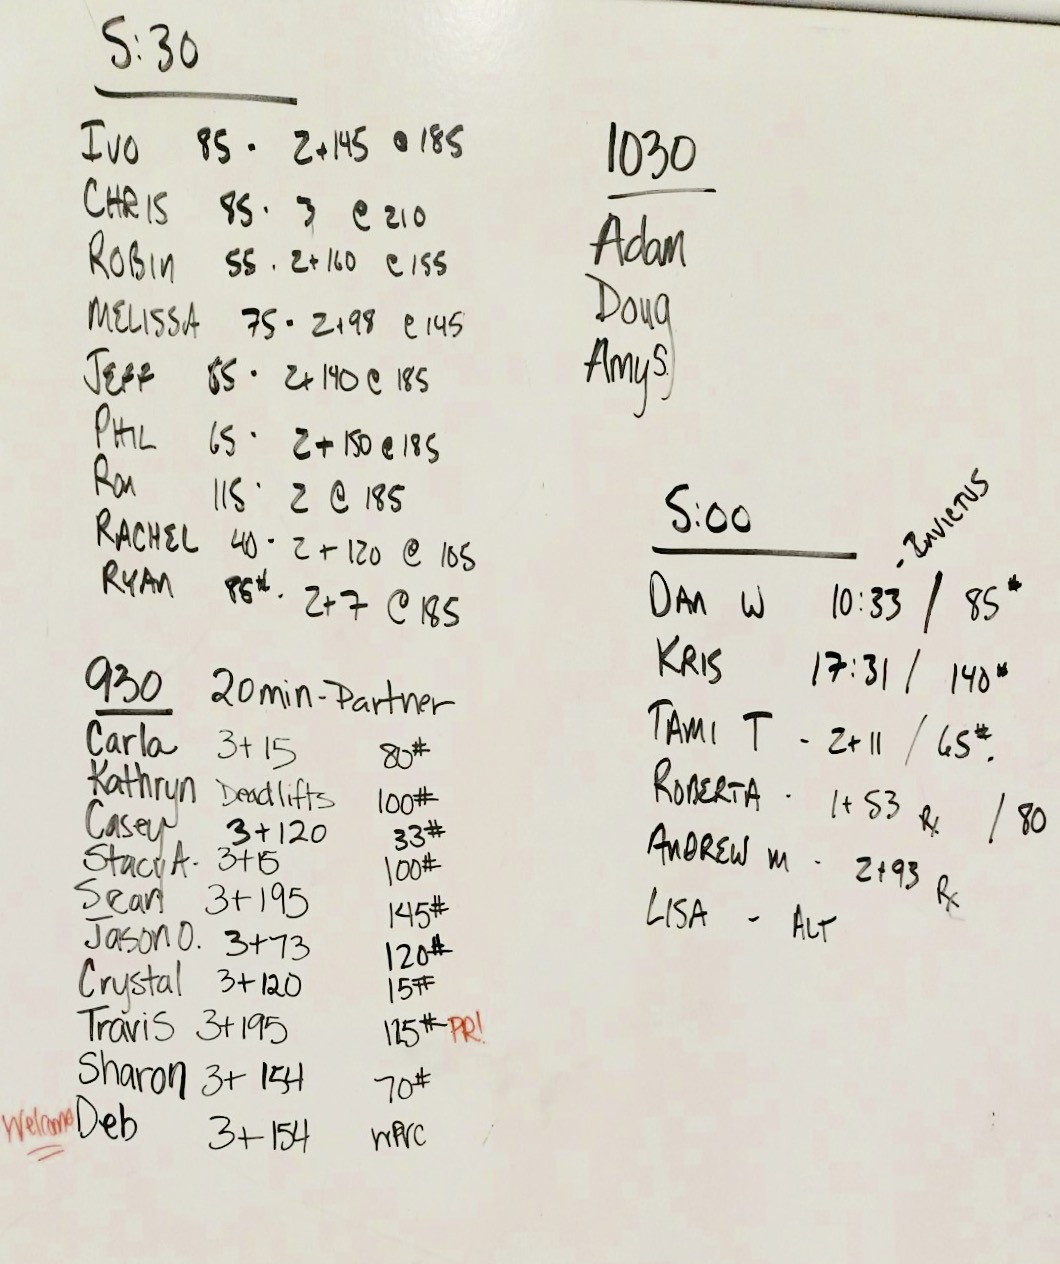 5:30
IVO 85 · 2+145 @ 185
CHRIS 85 · 3 @ 210
ROBIN 55 · 2+160 @ 155
MELISSA 75 · 2+98 @ 145
JEFF 85 · 2+140 @ 185
PHIL 65 · 2+150 @ 185
Ron 115 · 2 @ 185
RACHEL 40 · 2+120 @ 105
RYAN 85# · 2+7 @ 185
930 20min-Partner
Carla 3+15 80#
Kathryn Deadlifts 100#
Casey 3+120 33#
Stacy A. 3+15 100#
Sean 3+195 145#
Jason O. 3+73 120#
Crystal 3+120 15#
Travis 3+195 125# PR!
Sharon 3+154 70#
Welcome Deb 3+154 PVC
1030
Adam
Doug
Amy S.
5:00
· INVICTUS
DAN W 10:33 / 85#
KRIS 17:31 / 140#
TAMI T - 2+11 / 65#.
ROBERTA - 1+53 Rx / 80
ANDREW M - 2+93 Rx
LISA - ALT